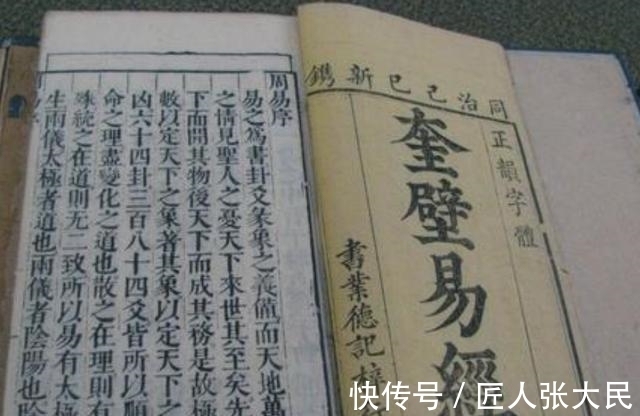 同治己巳新鐫
正韻字體
奎壁易經
書業德記
周易序
易之爲書卦爻彖象之義備而天地萬
之情見聖人之憂天下來世其至矣先
下而開其物後天下而成其務是故極
數以定天下之象著其象以定天下之
凶六十四卦三百八十四爻皆所以順
命之理盡變化之道也散之在理則有
殊統之在道則无二致所以易有太
生兩儀太極者道也兩儀者陰陽也陰
快传号／匠人张大民